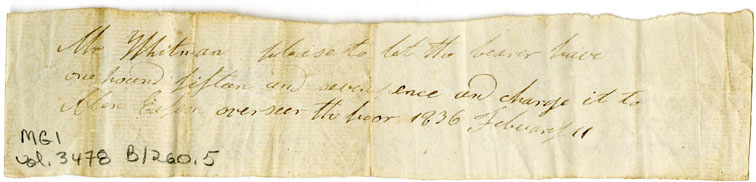 Mr Whitman please to let the bearer have
one pound fiftan and seven pence and charge it to
Alex overseer the poor 1836 Febuary 11
MG1
vol. 3478 B/260.5